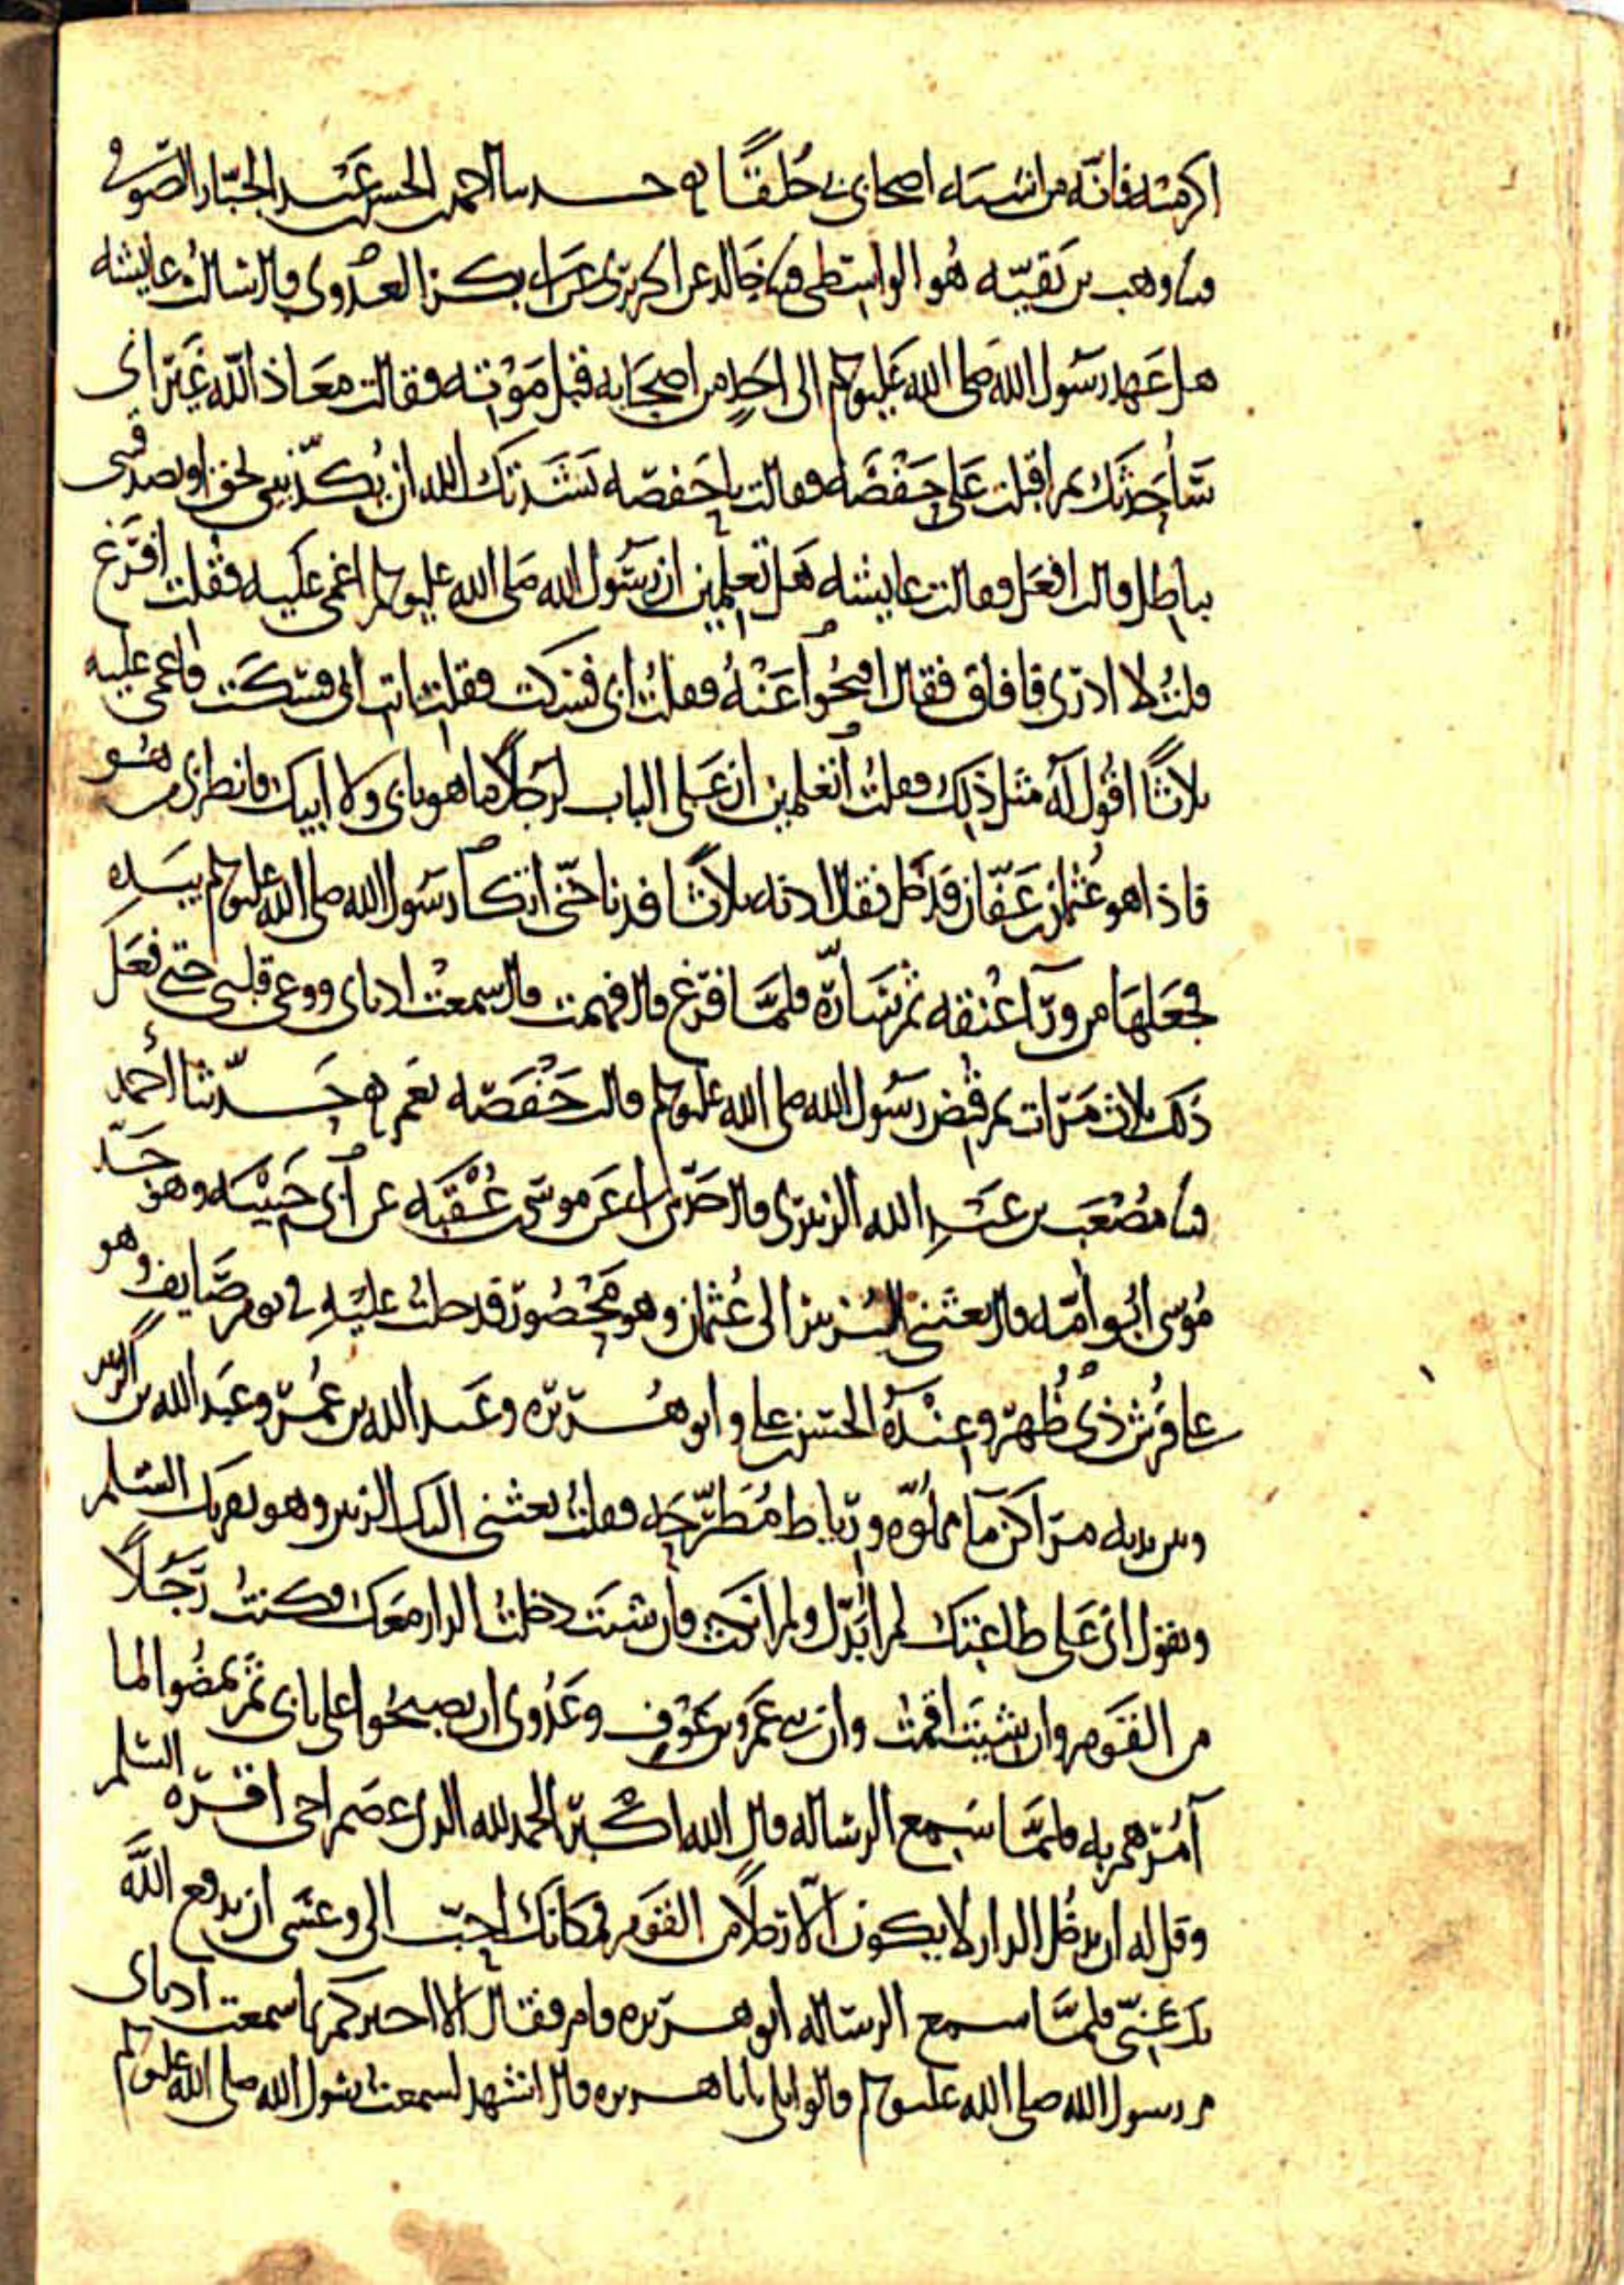 اكرميه فانه من اشبه اصحابي بي خلقا حدثنا احمد بن الحسن بن عبد الجبار الصوفي
ثنا وهب بن بقيه هو الواسطي ثنا خالد عن الجريري عن ابي بكر العدوي قال سالت عايشه
هل عهد رسول الله صلى الله عليه وسلم الى احد من اصحابه قبل موته فقالت معاذ الله غير اني
ساحدثك ثم اقبلت على حفصه فقالت يا حفصه نشدتك الله ان تكذبيني بحق او تصدقيني
بباطل قالت افعل فقالت عايشه هل تعلمين ان رسول الله صلى الله عليه وسلم اغمي عليه فقلت افرغ
قلت لا ادري فافاق فقال افتحوا عنه فقلت ابي فسكت فقلت ات ابي فسكت فاغمي عليه
ثلاثا اقول له مثل ذلك فقلت اتعلمين ان على الباب لرجلا ما هو بابي ولا ابيك فانظري من هو
فاذا هو عثمان بن عفان فدخل فقال ادنه ثلاثا فدنا حتى اتكا رسول الله صلى الله عليه وسلم بيده
فجعلها من ورآ عنقه ثم سارّه فلما فرغ قال فهمت قال سمعت اذناي ووعى قلبي حتى فعل
ذلك ثلاث مرات ثم قبض رسول الله صلى الله عليه وسلم قالت حفصه نعم حدثنا احمد
ثنا مصعب بن عبد الله الزبيري قال حدثني ابي عن موسى بن عقبه عن ابي حبيبه وهو جد
موسى ابو امه قال بعثني الزبير الى عثمان وهو محصور فدخلت عليه في يوم صايف وهو
على فرش ذي ظهر وعنده الحسن بن علي وابو هريره وعبد الله بن عمر وعبد الله بن الزبير
وبين يديه مراكن مآ مملوه ورياط مطرحه فقلت بعثني اليك الزبير وهو يقريك السلم
ويقول اني على طاعتك لم ابدل ولم انكث فان شئت دخلت الدار معك فكنت رجلا
من القوم وان شئت اقمت وان بني عمرو بن عوف وعدوني ان يصبحوا على بابي ثم يمضوا لما
آمرهم به فلما سمع الرساله قال الله اكبر الحمد لله الذي عصم اخي اقره السلم
وقل له ان يدخل الدار لا يكون الا رجلا من القوم فمكانك احب الي وعسى ان يدفع الله
بك عني فلما سمع الرساله ابو هريره قام فقال الا اخبركم بما سمعت اذناي
من رسول الله صلى الله عليه وسلم قالوا بلى يا با هريره قال اشهد لسمعت رسول الله صلى الله عليه وسلم